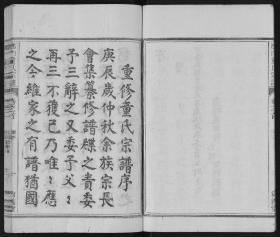 重修童氏宗譜序
庚辰歲仲秋余族宗長
會集纂修譜牒之責委
予三辭之又委予父〻
再三不復已乃唯〻應
之今雖家之有譜猶國